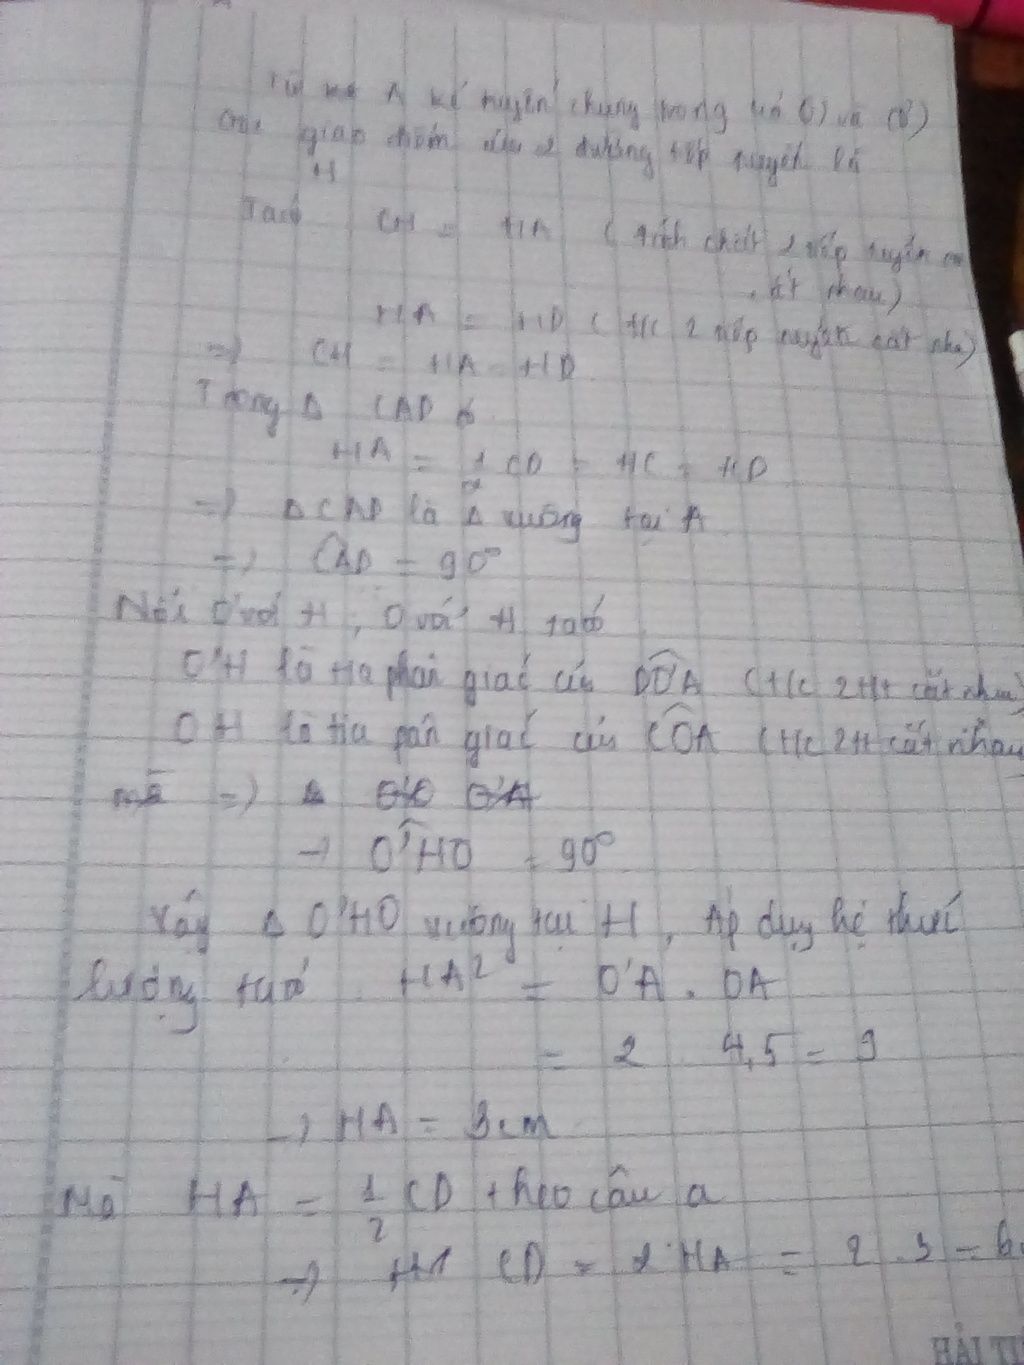 Từ A kẻ tuyến chung trong của (O) và (O')
giao điểm của 2 đường tiếp tuyến là
H
Ta có CH = HA ( tính chất 2 tiếp tuyến
cắt nhau)
HA = HD ( t/c 2 tiếp tuyến cắt nha)
=) CH = HA = HD
Trong Δ CAD có
HA = 1/2 CD = HC = HD
=) Δ CAD là Δ vuông tại A
=) CAD = 90°
Nối O' với H, O với H ta có
O'H là tia phân giác của DO'A (t/c 2tt cắt nhau)
OH là tia pân giác của COA (t/c 2tt cắt nhau
=)
→ O'HO = 90°
Vậy Δ O'HO vuông tại H, Áp dụg hệ thức
lượng ta có HA² = O'A . OA
= 2 . 4,5 = 9
→ HA = 3cm
Mà HA = 1/2 CD theo câu a
→ CD = 2 HA = 2 . 3 = 6